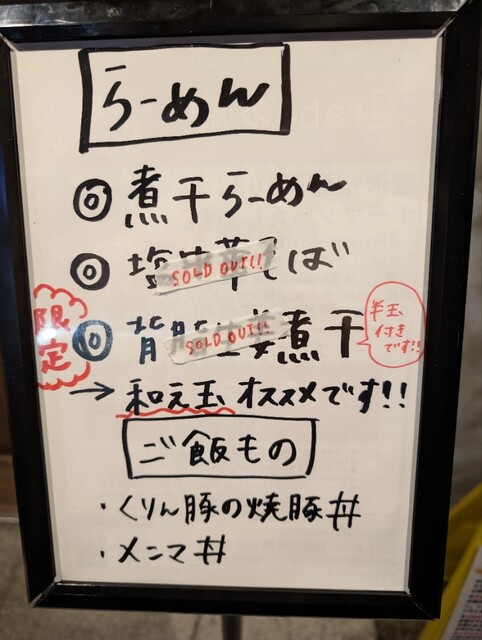 らーめん
◎ 煮干らーめん
◎ 塩 そば
SOLD OUT!!
限定
◎ 背脂生姜煮干
SOLD OUT!!
半玉
付き
です!!
→ 和え玉 オススメです!!
ご飯もの
・くりん豚の焼豚丼
・メンマ丼